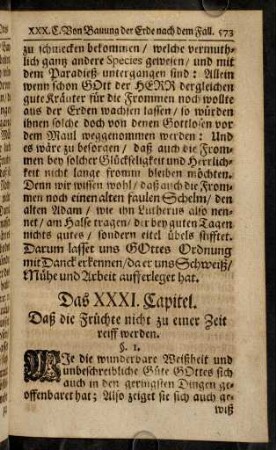 XXX. C. Von Bauung der Erde nach dem Fall. 573
zu schmecken bekommen / welche vermuth-
lich gantz andere Species gewesen / und mit
dem Paradieß untergangen sind: Allein
wenn schon GOtt der HERR dergleichen
gute Kräuter für die Frommen noch wollte
aus der Erden wachsen lassen / so würden
ihnen solche doch von denen Gottlosen vor
dem Maul weggenommen werden: Und
es wäre zu besorgen / daß auch die From-
men bey solcher Glückseligkeit und Herrlich-
keit nicht lange fromm bleiben möchten.
Denn wir wissen wohl / daß auch die From-
men noch einen alten faulen Schelm / den
alten Adam / wie ihn Lutherus also nen-
net / am Halse tragen / der bey guten Tagen
nichts gutes / sondern eitel übels stifftet.
Darum lasset uns GOttes Ordnung
mit Danck erkennen / da er uns Schweiß /
Mühe und Arbeit aufferleget hat.
Das XXXI. Capitel.
Daß die Früchte nicht zu einer Zeit
reiff werden.
§. 1.
WIe die wunderbare Weißheit und
unbeschreibliche Güte GOttes sich
auch in den geringsten Dingen ge-
offenbaret hat; Also zeiget sie sich auch ge-
wiß